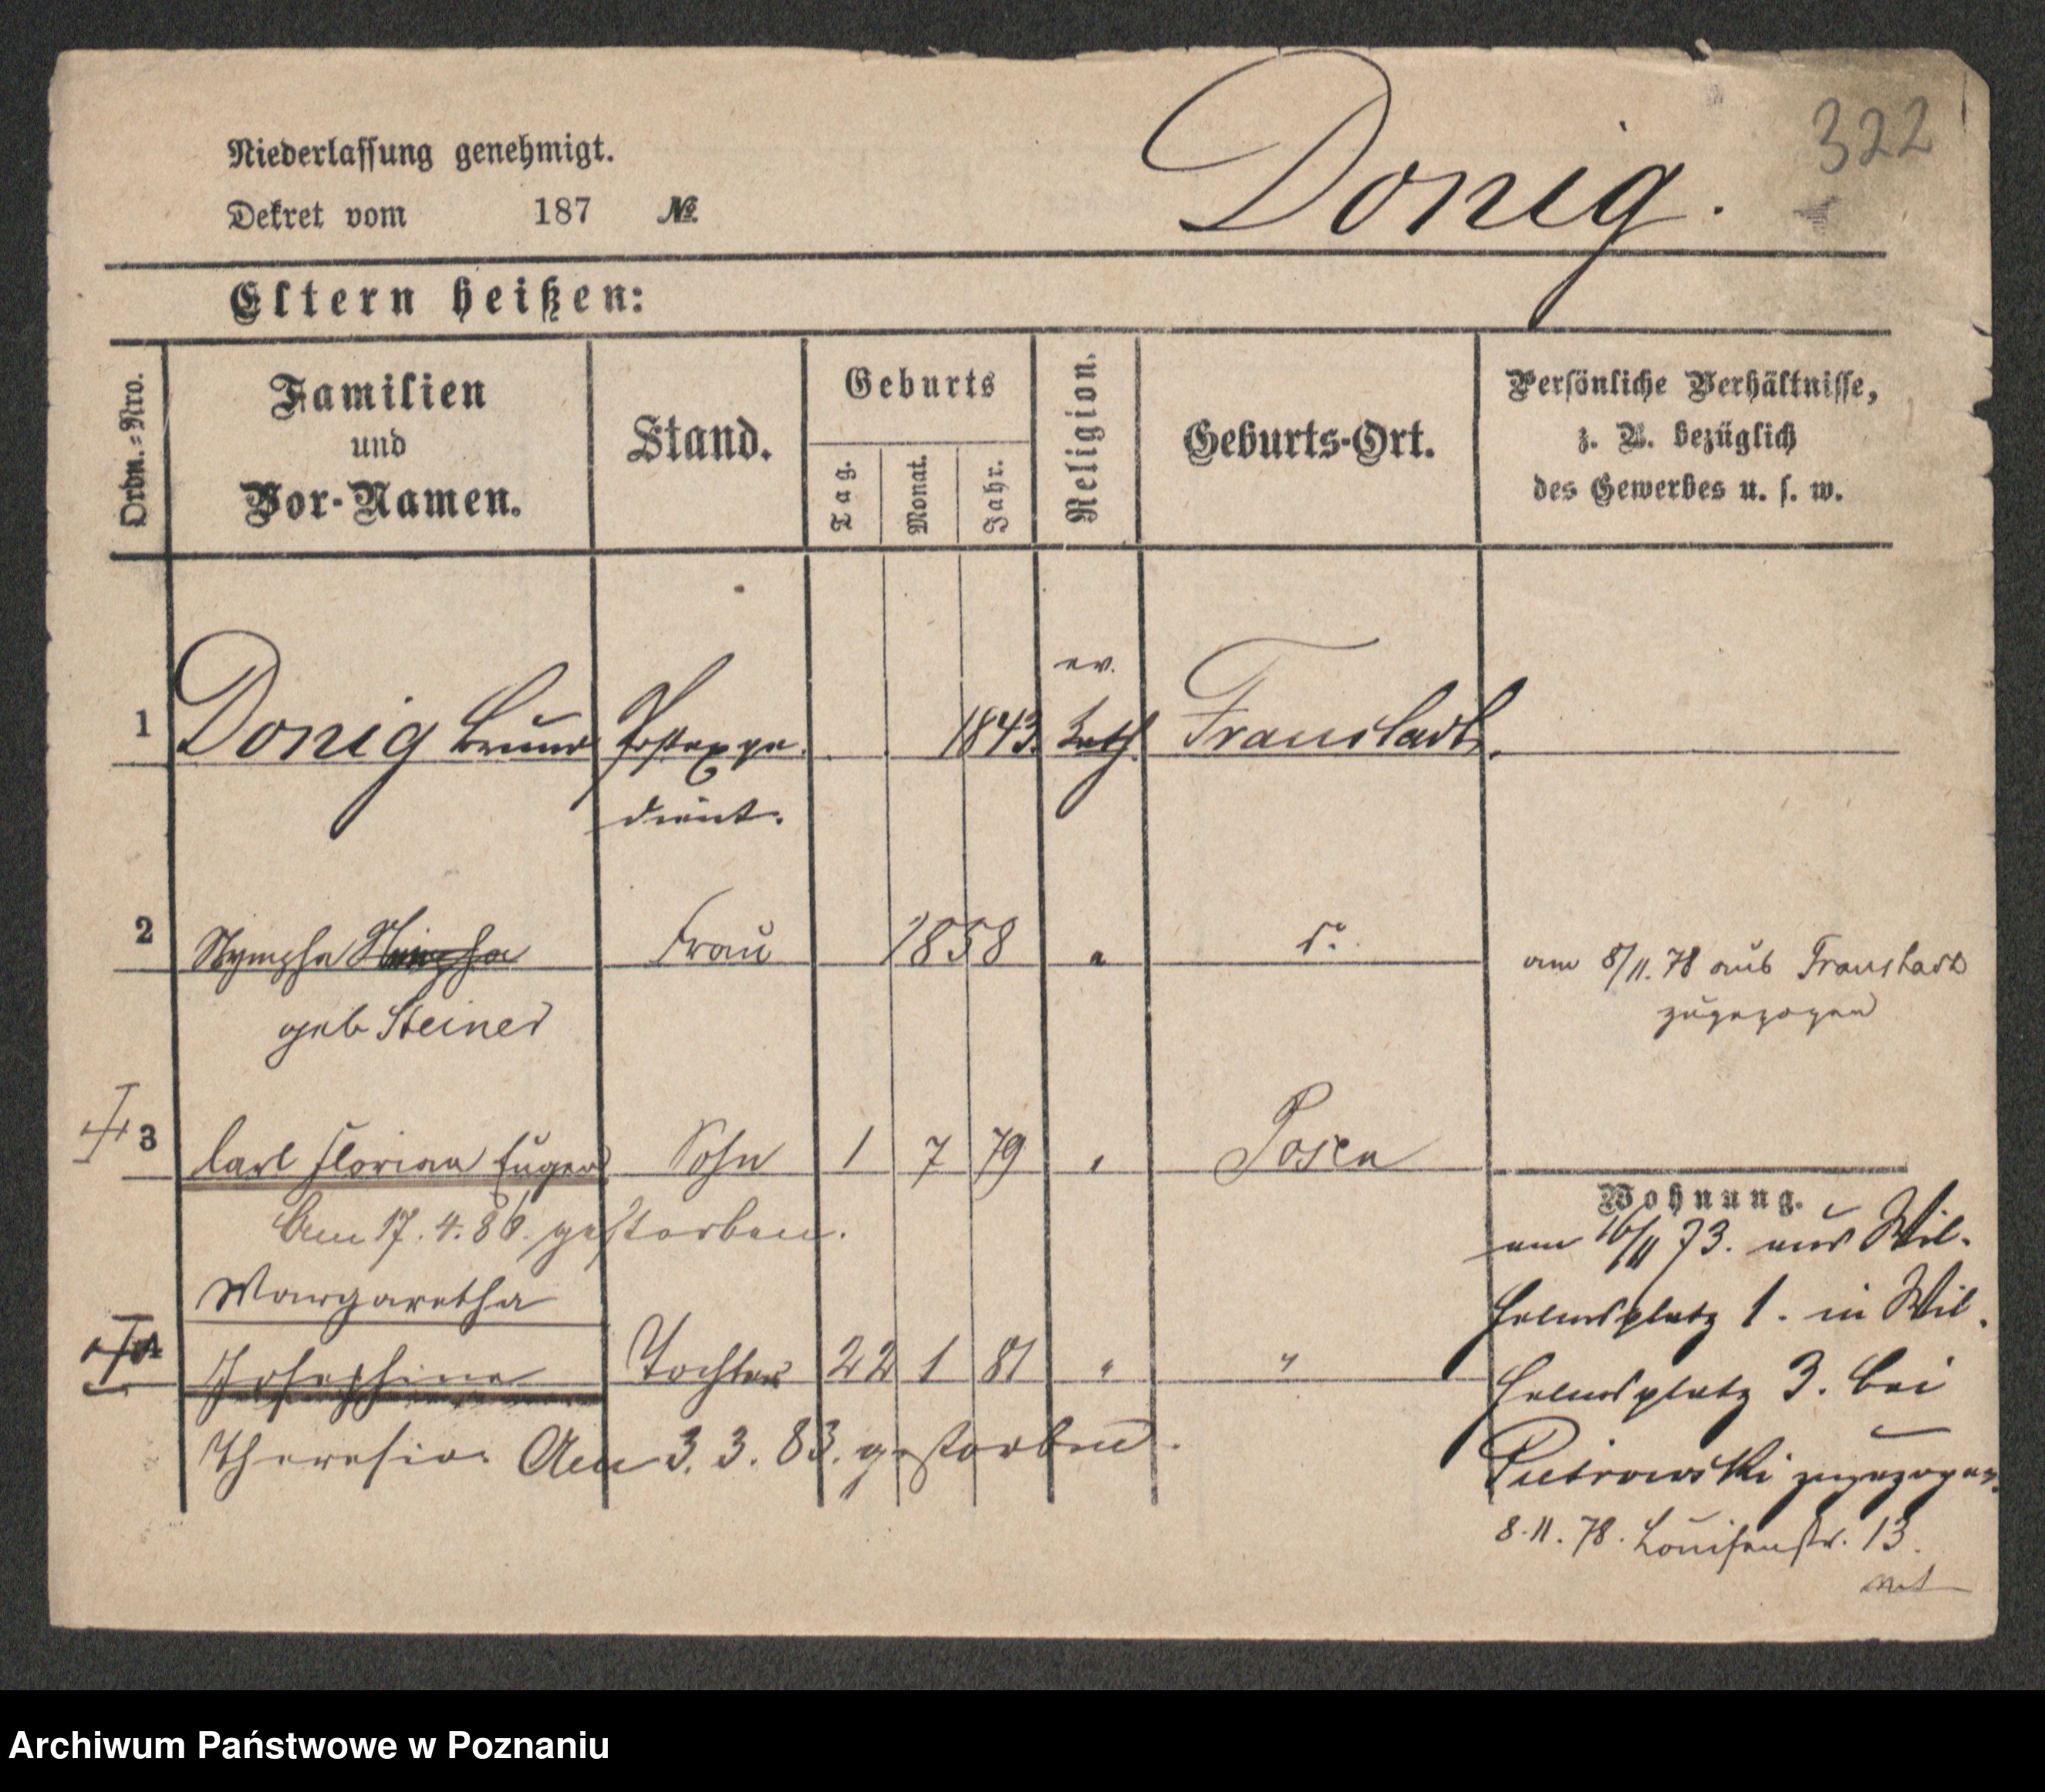 322
Donig.
Niederlassung genehmigt.
Dekret vom 187 No.
Eltern heißen:
Ordn.=Nro.
Familien und Vor-Namen.
Stand.
Geburts
Tag.
Monat.
Jahr.
Religion.
Geburts-Ort.
Persönliche Verhältnisse,
z. B. bezüglich
des Gewerbes u. s. w.
ev.
1 Donig Bruno Postexpe- 1843. kath. Fraustadt.
dient.
2 Nympha Frau 1858 " do.
geb Steiner
am 8/11. 78 aus Fraustadt
zugezogen
3 Carl Florian Eugen Sohn 1 7 79 " Posen
Am 17. 4. 86. gestorben.
Margaretha
Josephine Tochter 22 1 81 " "
Theresia. Am 3. 3. 83. gestorben.
Wohnung.
am 16/11 73. aus Wil-
helmsplatz 1. in Wil-
helmsplatz 3. bei
Pietrowski zugezogen.
8. 11. 78. Louisenstr. 13.
Archiwum Państwowe w Poznaniu